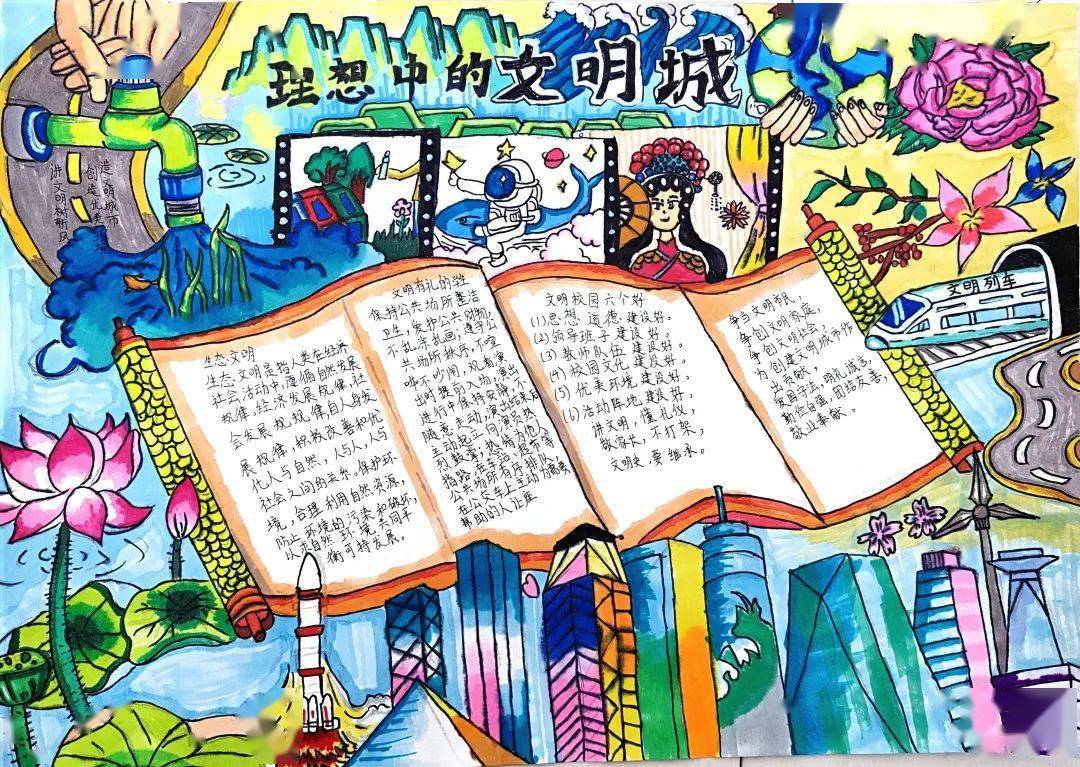 理想中的文明城
讲文明树新风
创造优美
造文明城市
文明列车
生态文明
生态文明是指人类在经济
社会活动中,遵循自然发展
规律,经济发展规律,社
会发展规规律自人身发
展规律,积极改善和优
化人与自然,人与人,人与
社会之间的关系,保护环
境,合理利用自然资源,
防止环境的污染和破坏,
以求自然环境共同平
衡可持发展。
文明有礼的学生
保持公共场所整洁
卫生,爱护公共财物,
不乱涂乱画,遵守公
共场所秩序,不喧
哗不吵闹,观看演
出时提前入场,演出
进行中保持安静,不
随意走动,演出结束后
主动起立向演员热
烈鼓掌,热情为他人
指路,在车站超市等
公共场所有序排队,
在公交车上主动为需要
帮助的人让座
文明校园六个好
(1)思想道德建设好。
(2)领导班子建设好。
(3)教师队伍建设好。
(4)校园文化建设好。
(5)优美环境建设好。
(6)活动阵地建设好。
讲文明,懂礼仪,
敬师长,不打架,
文明史要继承。
争当文明市民,
争创文明家庭,
争创文明社会,
为创建文明城市作
出贡献,
爱国守法,明礼诚信,
勤俭自强,团结友善,
敬业奉献。